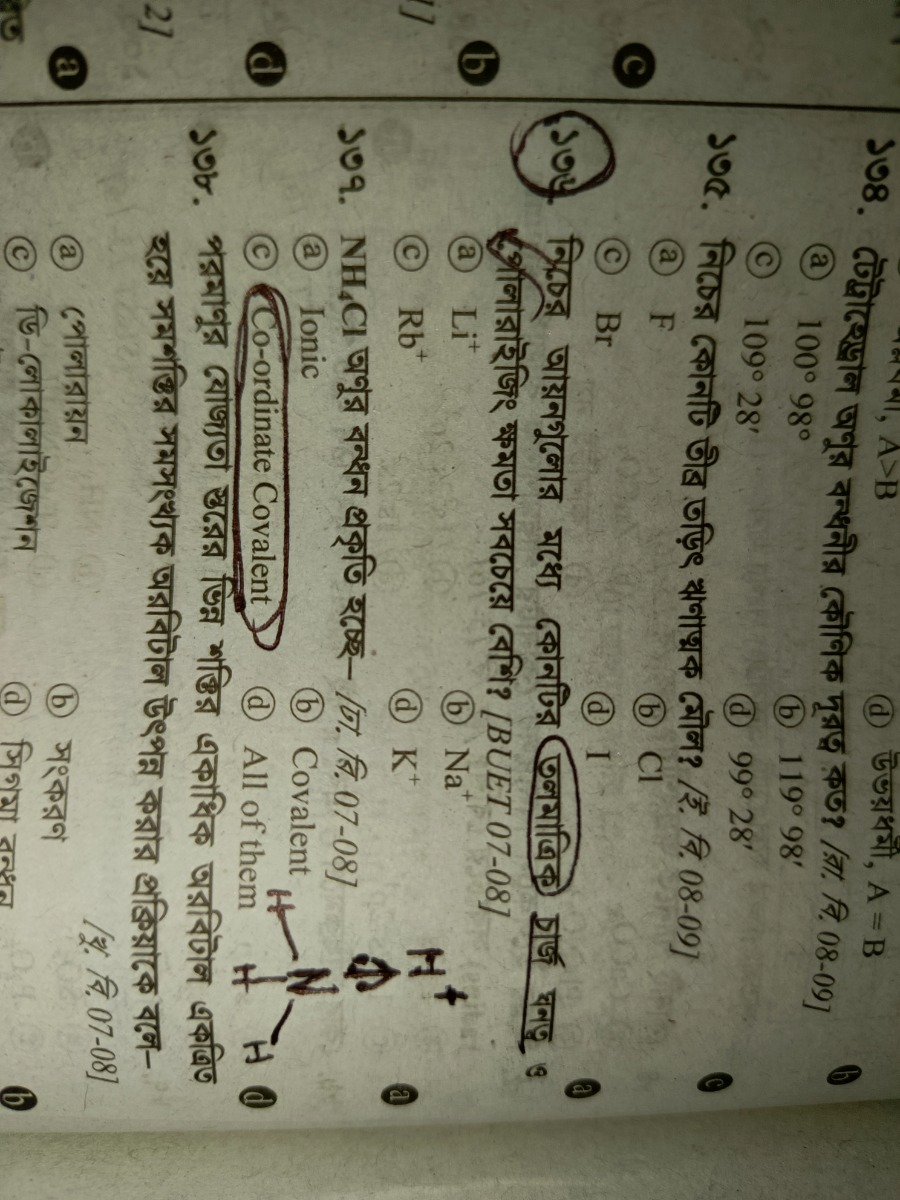 2]
a
d
b
c
A>B
d উভয়ধর্মী, A = B
১৩৪. টেট্রাহেড্রাল অণুর বন্ধনীর কৌণিক দূরত্ব কত? [রা. বি. 08-09] b
a 100° 98° b 119° 98′
c 109° 28′ d 99° 28′
১৩৫. নিচের কোনটি তীব্র তড়িৎ ঋণাত্মক মৌল? [ই. বি. 08-09] c
a F b Cl
c Br d I
১৩৬. নিচের আয়নগুলোর মধ্যে কোনটির তলমাত্রিক চার্জ ঘনত্ব ও a
পোলারাইজিং ক্ষমতা সবচেয়ে বেশি? [BUET 07-08]
a Li⁺ b Na⁺
c Rb⁺ d K⁺
H⁺
১৩৭. NH₄Cl অণুর বন্ধন প্রকৃতি হচ্ছে– [ঢা. বি. 07-08] a
a Ionic b Covalent
c Co-ordinate Covalent d All of them
H N H
H
১৩৮. পরমাণুর যোজ্যতা স্তরের ভিন্ন শক্তির একাধিক অরবিটাল একত্রিত d
হয়ে সমশক্তির সমসংখ্যক অরবিটাল উৎপন্ন করার প্রক্রিয়াকে বলে–
[খু. বি. 07-08]
a পোলারায়ন b সংকরণ
c ডি-লোকালাইজেশন d সিগমা বন্ধন b